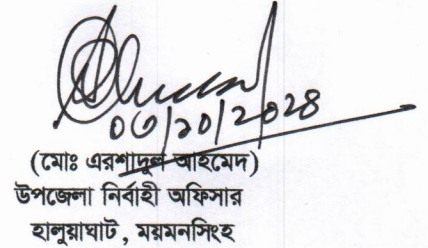 ০৩/১০/২০২৪
(মোঃ এরশাদুল আহমেদ)
উপজেলা নির্বাহী অফিসার
হালুয়াঘাট , ময়মনসিংহ